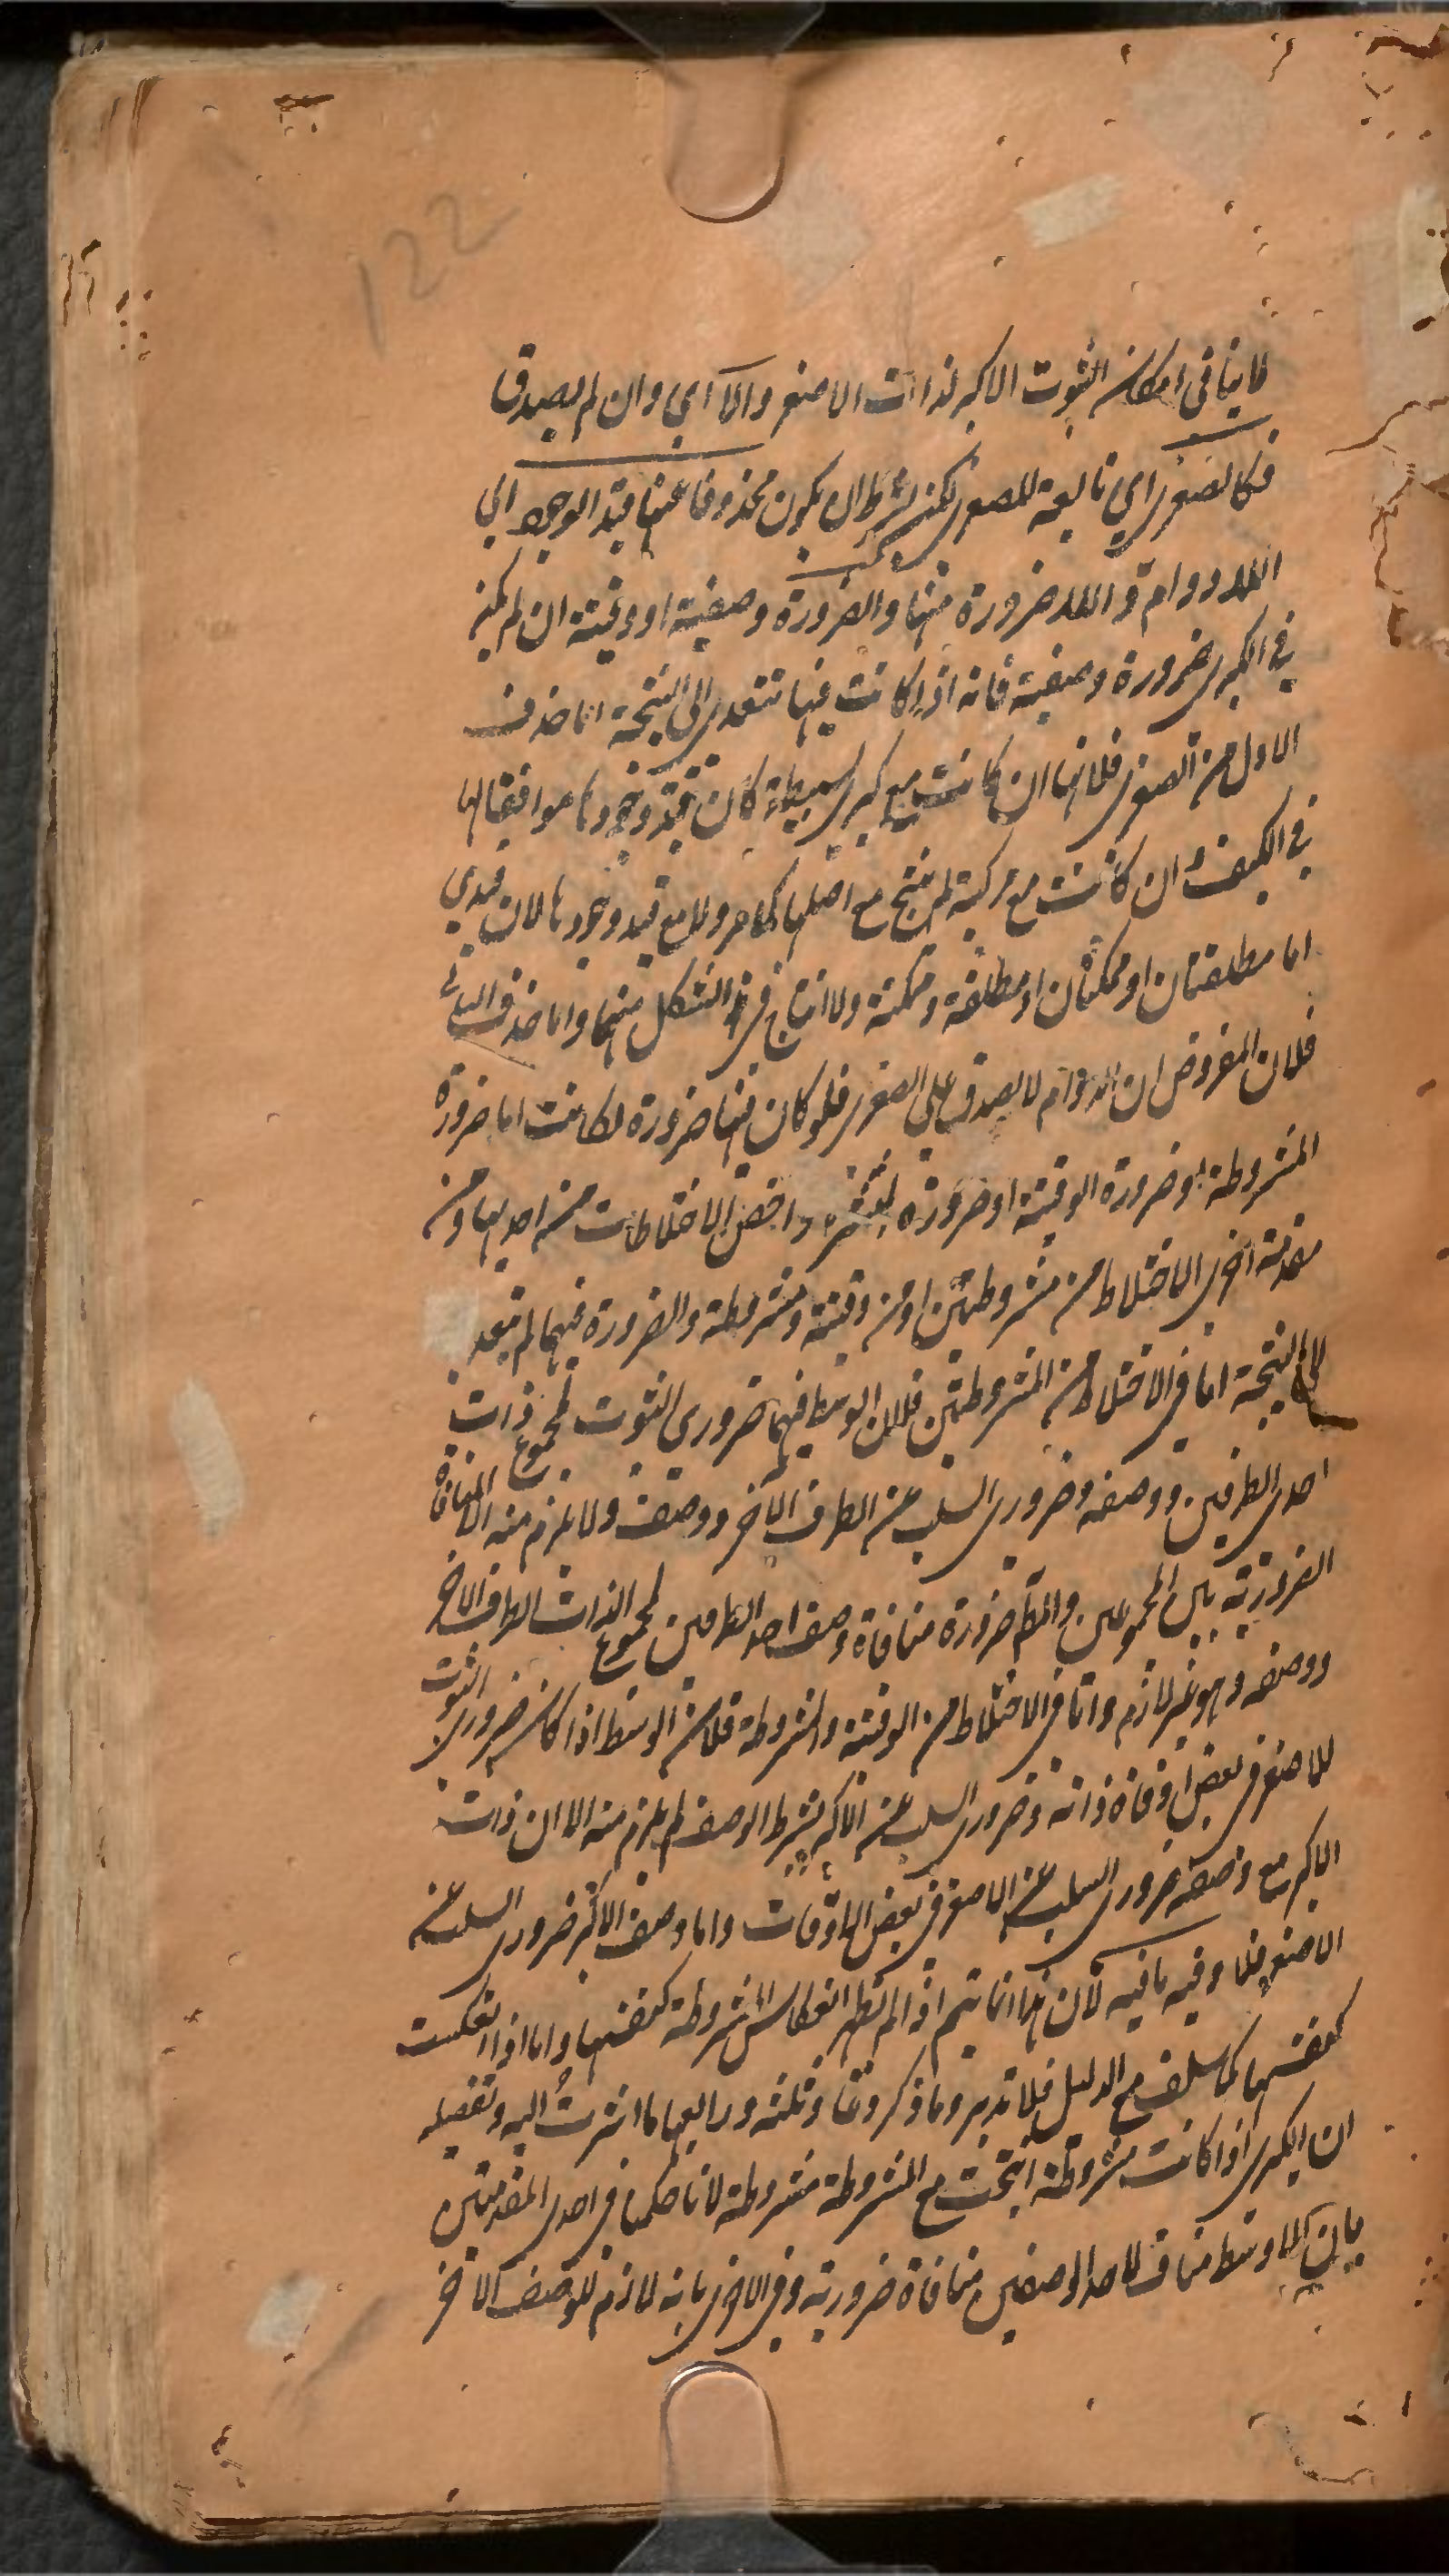 122
لا ينافى امكان الثبوت الاكبر لذات الاصغر والا اي وان لم يصدق
فكالصغرى اي تابعة للصغرى لكن بشرط ان يكون محذوفا عنها قيد الوجود اي
اللادوام واللاضرورة منها والضرورة وصفية او وقتية ان لم يكن
في الكبرى ضرورة وصفية فانه اذا كانت فيها تتعدى الى النتيجة اما حذف
الاول من الصغرى فلانها ان كانت مع كبرى بسيطة كان قيد وجودها موافقا لها
في الكيف وان كانت مع مركبة لم ينتج مع اصلها كما مر ولا مع قيد وجودها لان قيدي
اما مطلقتان او ممكنتان او مطلقة وممكنة ولا انتاج في هذا الشكل منهما واما حذف الثاني
فلان المفروض ان الدوام لا يصدق على الصغرى فلو كان فيها ضرورة لكانت اما ضرورة
المشروطة او ضرورة الوقتية او ضرورة المنتشرة واخص الاختلاطات من احديها ومن
مقدمة اخرى الاختلاط من مشروطتين او من وقتية ومشروطة والضرورة فيهما لم تتعد
الى النتيجة اما في الاختلاط من المشروطتين فلان الوسط فيهما ضروري الثبوت لمجموع ذات
احدى الطرفين ووصفه وضروري السلب عن الطرف الآخر ووصفه ولا يلزم منه الا المنافاة
الضرورية بين المجموعين والمط ضرورة منافاة وصف احد الطرفين لمجموع الذات الطرف الاخر
ووصفه وهو غير لازم واما في الاختلاط من الوقتية والمشروطة فلان الوسط اذا كان ضروري الثبوت
للاصغر في بعض اوقات ذاته وضروري السلب عن الاكبر بشرط الوصف لم يلزم منه الا ان ذات
الاكبر مع وصفه ضروري السلب عن الاصغر في بعض الاوقات واما وصف الاكبر ضروري السلب عن
الاصغر فلا وفيه ما فيه لان هذا انما يتم اذا لم تظهر انعكاس المشروطة كنفسها واما اذا انعكست
كنفسها كما سلف مع الدليل فلا تدبر وما ذكروها وثلثه ورابعها ما اشرت اليه وتفصيله
ان الكبرى اذا كانت مشروطة انتجت مع المشروطة مشروطة لانا حكمنا في احدى المقدمتين
بان الاوسط مناف لاحد الوصفين منافاة ضرورية وفي الاخرى بانه لازم للوصف الاخر